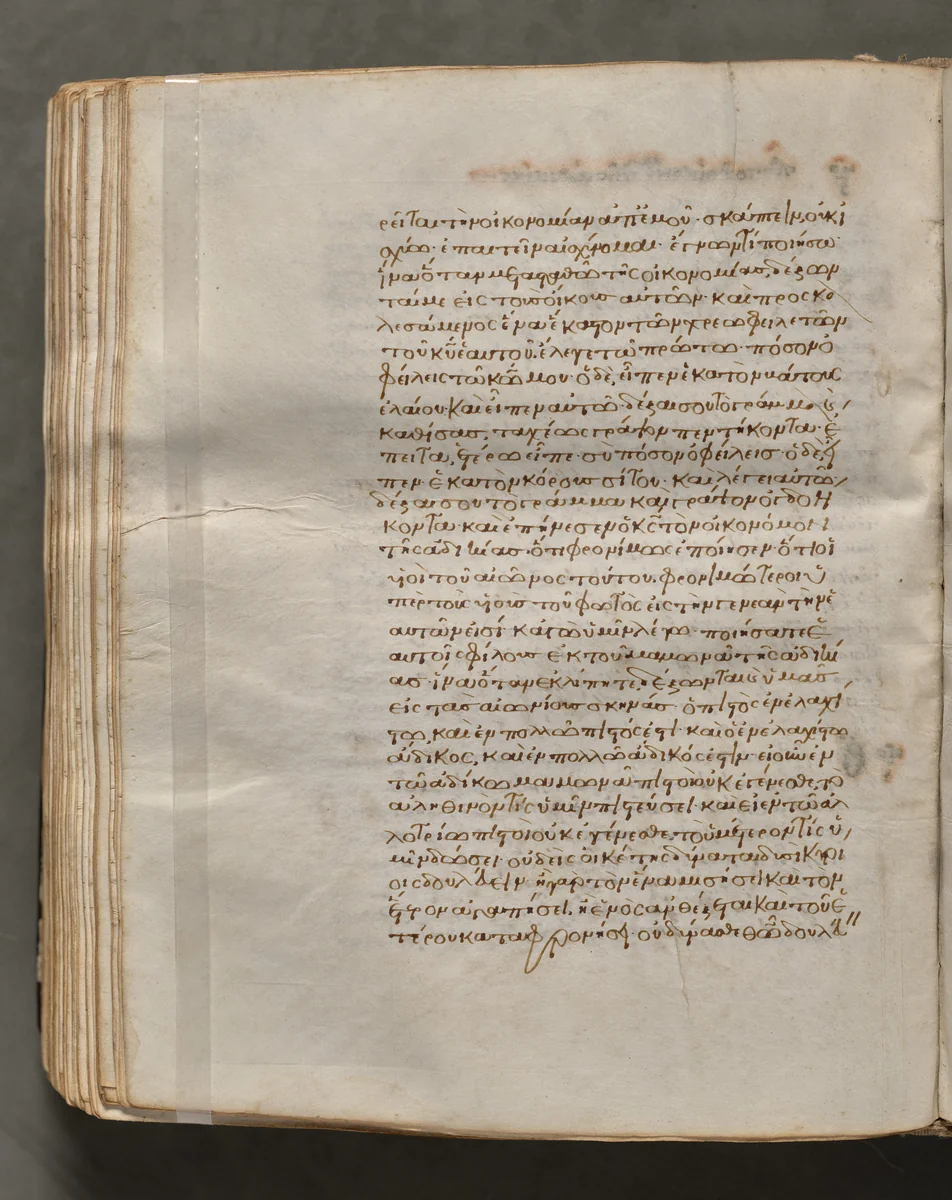 ρεῖται τὴν οἰκονομίαν ἀπ' ἐμοῦ· σκάπτειν, οὐκ ἰ
σχύω· ἐπαιτεῖν αἰσχύνομαι· ἔγνων τί ποιήσω
ἵνα ὅταν μετασταθῶ τῆς οἰκονομίας, δέξων
ταί με εἰς τοὺς οἴκους αὐτῶν· καὶ προσκα
λεσάμενος ἕνα ἕκαστον τῶν χρεωφειλετῶν
τοῦ κυ ἑαυτοῦ. ἔλεγε τῶ πρώτω· πόσον ὀ
φείλεις τῶ κω μου· ὁ δὲ, εἶπεν ἑκατὸν βάτους
ἐλαίου. καὶ εἶπεν αὐτῶ· δέξαι σου τὸ γράμμα
καθίσας, ταχέως γράψον πεντήκοντα· ἔ
πειτα, ἑτέρω εἶπε· σὺ πόσον ὀφείλεις· ὁ δὲ εἶ
πεν· ἑκατὸν κόρους σίτου· καὶ λέγει αὐτῶ·
δέξαι σου τὸ γράμμα καὶ γράψον ὀγδοή
κοντα· καὶ ἐπήνεσεν ὁ κς τὸν οἰκονόμον
τῆς ἀδικίας· ὅτι φρονίμως ἐποίησεν· ὅτι οἱ
υἱοὶ τοῦ αἰῶνος τούτου. φρονιμώτεροι ὑ
πὲρ τοὺς υἱοὺς τοῦ φωτὸς εἰς τὴν γενεὰν τὴν ἑ
αυτῶν εἰσί· κἀγὼ ὑμῖν λέγω· ποιήσατε ἑ
αυτοῖς φίλους ἐκ τοῦ μαμωνᾶ τῆς ἀδικί
ας· ἵνα ὅταν ἐκλίπητε, δέξωνται ὑμᾶς
εἰς τὰς αἰωνίους σκηνάς· ὁ πιστὸς ἐν ἐλαχί
στω, καὶ ἐν πολλῶ πιστός ἐστι· καὶ ὁ ἐν ἐλαχίστω
ἄδικος, καὶ ἐν πολλῶ ἄδικός ἐστιν· εἰ οὖν ἐν
τῶ ἀδίκω μαμωνᾶ πιστοὶ οὐκ ἐγένεσθε, τὸ
ἀληθινὸν τίς ὑμῖν πιστεύσει· καὶ εἰ ἐν τῶ ἀλ
λοτρίω πιστοὶ οὐκ ἐγένεσθε. τὸ ὑμέτερον τίς ὑ
μῖν δώσει· οὐδεὶς οἰκέτης δύναται δυσὶ κυρί
οις δουλεύειν· ἢ γὰρ τὸν ἕνα μισήσει καὶ τὸν
ἕτερον ἀγαπήσει. ἢ ἑνὸς ἀνθέξεται καὶ τοῦ ἑ
τέρου καταφρονήσει· οὐ δύνασθε θω δουλεύ